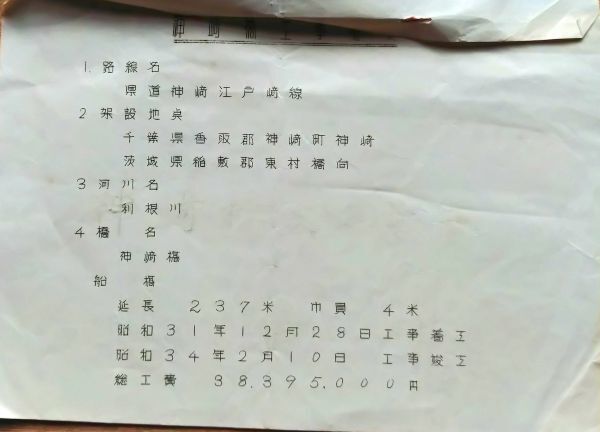 神崎橋工事
1. 路線名
県道神崎江戸崎線
2 架設地点
千葉県香取郡神崎町神崎
茨城県稲敷郡東村橋向
3 河川名
利根川
4 橋名
神崎橋
船橋
延長 237米 巾員 4米
昭和31年12月28日工事着工
昭和34年2月10日 工事竣工
総工費 38.395.000円